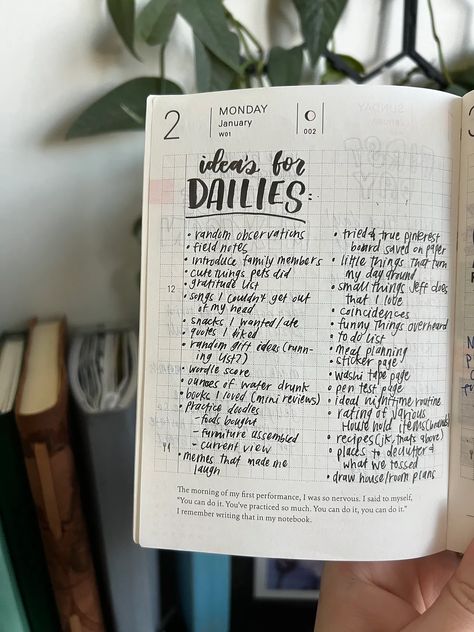 2
MONDAY
January
W01
002
idea's for
DAILIES:
• random observations
• field notes
• introduce family members
• cute things pets did
• gratitude list
• songs I couldn't get out
of my head
• snacks I wanted/ate
• quotes I liked
• random gift ideas (runn-
ing list?)
• wordle score
• ounces of water drunk
• books I loved (mini reviews)
• practice doodles
- foods bought
- furniture assembled
- current view
• memes that made me
laugh
12
• tried & true pinterest
board saved on paper
• little things that turn
my day around
• small things Jeff does
that I love
• coincidences
• funny things overheard
• to do list
• meal planning
• sticker page
• washi tape page
• pen test page
• ideal nighttime routine
• rating of various
household items (brands)
• recipes (jk, thats above)
• places to declutter &
what we tossed
• draw house/room plans
The morning of my first performance, I was so nervous. I said to myself,
"You can do it. You've practiced so much. You can do it, you can do it."
I remember writing that in my notebook.